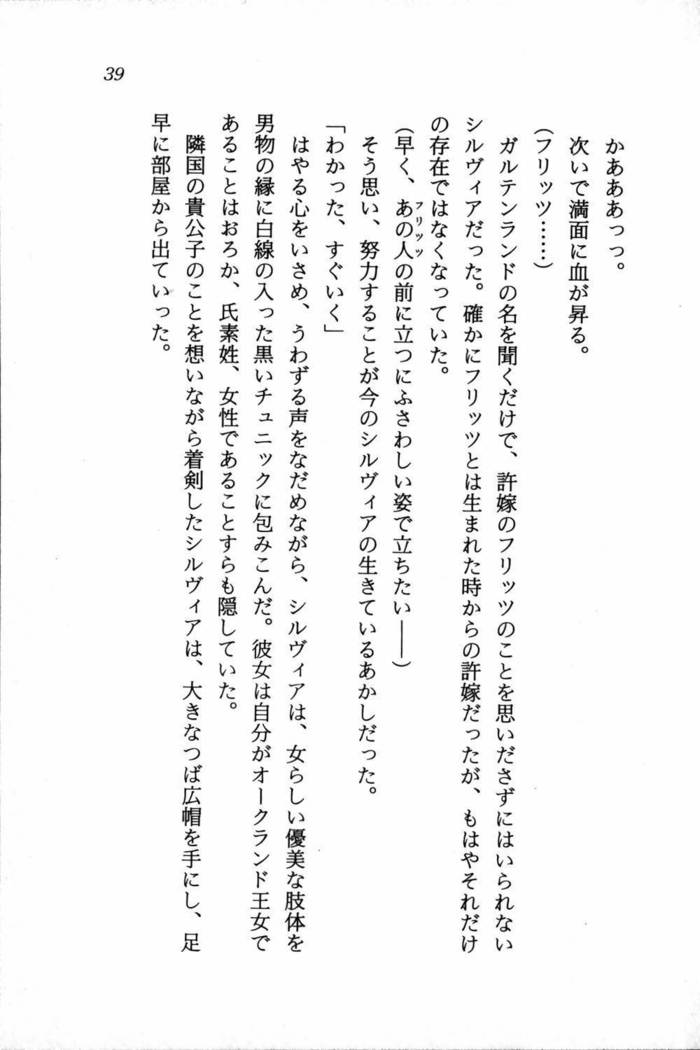 39
かあああっっ。
次いで満面に血が昇る。
(フリッツ……)
ガルテンランドの名を聞くだけで、許嫁のフリッツのことを思いださずにはいられない
シルヴィアだった。確かにフリッツとは生まれた時からの許嫁だったが、もはやそれだけ
の存在ではなくなっていた。
(早く、あの人の前に立つにふさわしい姿で立ちたい――)
フリッツ
そう思い、努力することが今のシルヴィアの生きているあかしだった。
「わかった、すぐいく」
はやる心をいさめ、うわずる声をなだめながら、シルヴィアは、女らしい優美な肢体を
男物の縁に白線の入った黒いチュニックに包みこんだ。彼女は自分がオークランド王女で
あることはおろか、氏素姓、女性であることすらも隠していた。
隣国の貴公子のことを想いながら着剣したシルヴィアは、大きなつば広帽を手にし、足
早に部屋から出ていった。